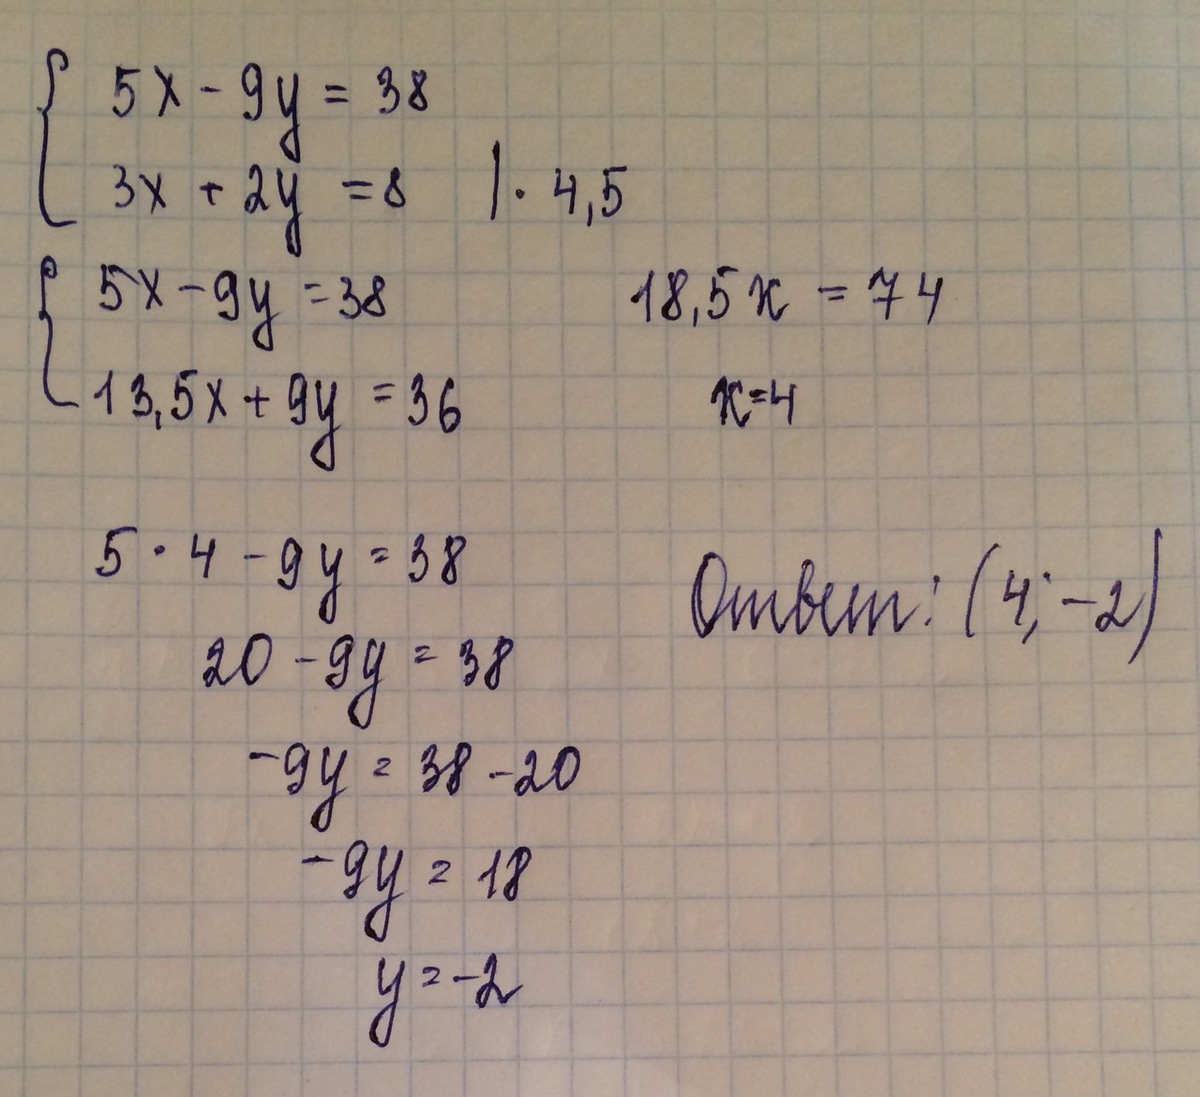 5x - 9y = 38
3x + 2y = 8 | · 4,5
5x - 9y = 38
13,5x + 9y = 36
18,5x = 74
x = 4
5 · 4 - 9y = 38
20 - 9y = 38
-9y = 38 - 20
-9y = 18
y = -2
Ответ: (4; -2)